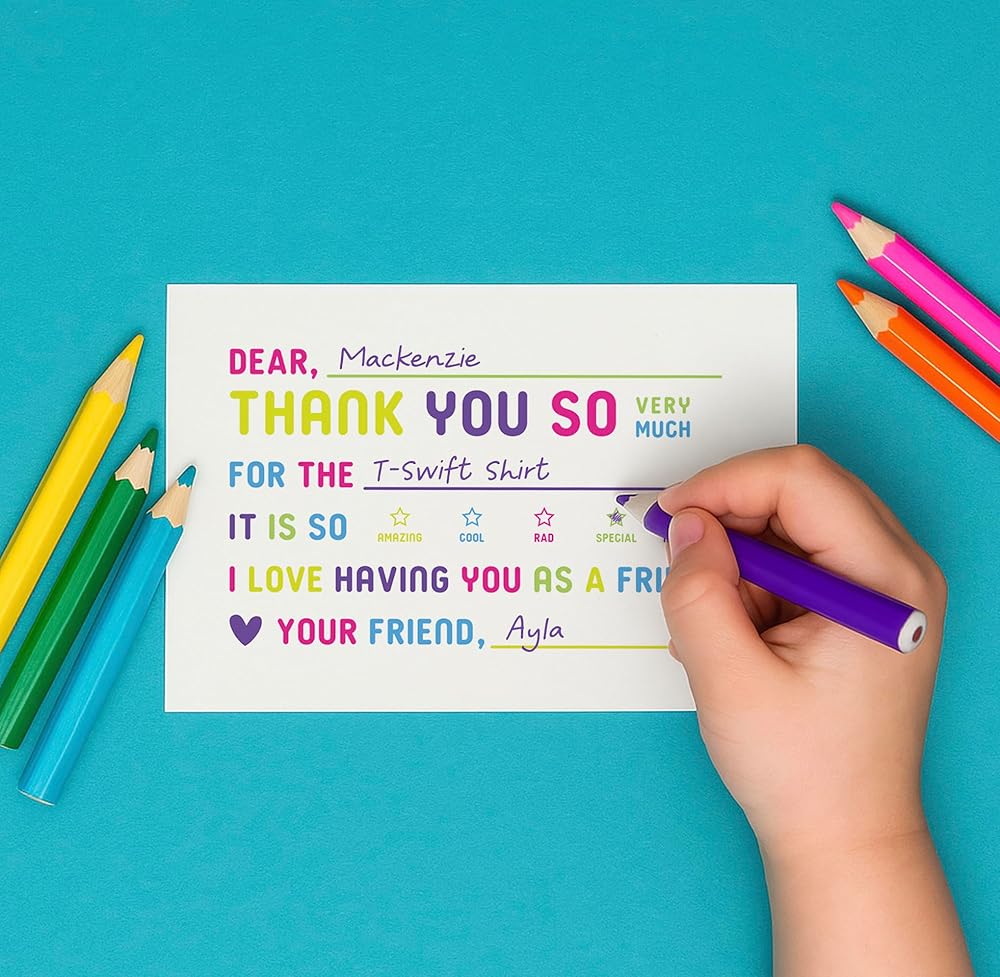 DEAR, Mackenzie
THANK YOU SO VERY MUCH
FOR THE T-Swift Shirt
IT IS SO AMAZING COOL RAD SPECIAL
I LOVE HAVING YOU AS A
YOUR FRIEND, Ayla